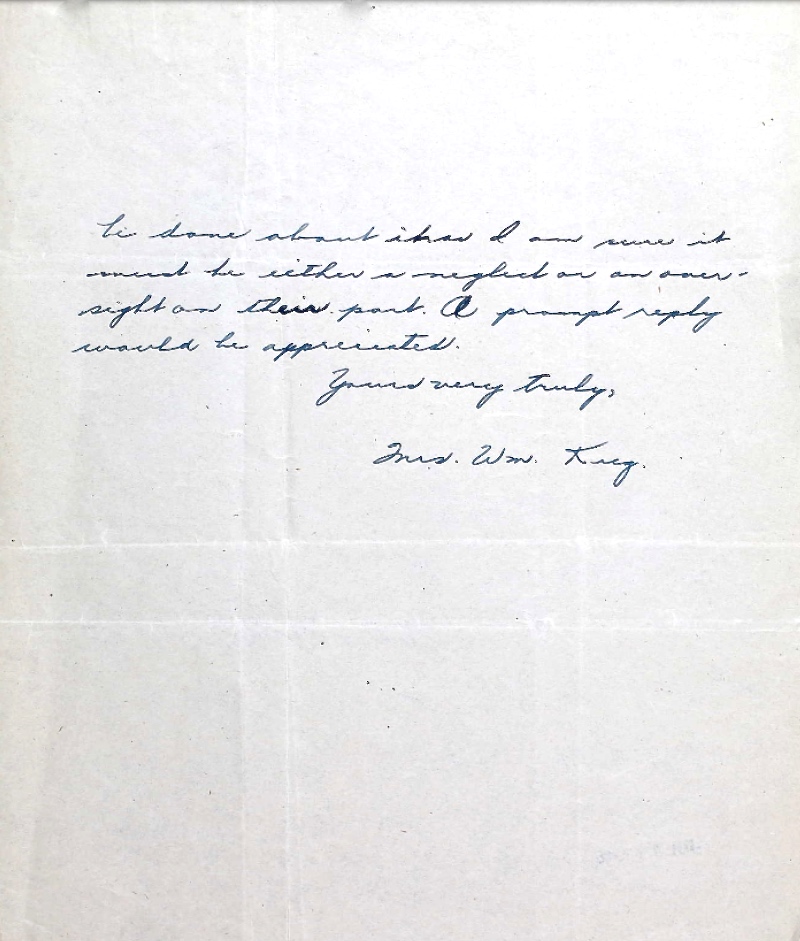 be done about it as I am sure it
must be either a neglect or an over-
sight on their part. A prompt reply
would be appreciated.
Yours very truly,
Mrs. Wm. Krug.